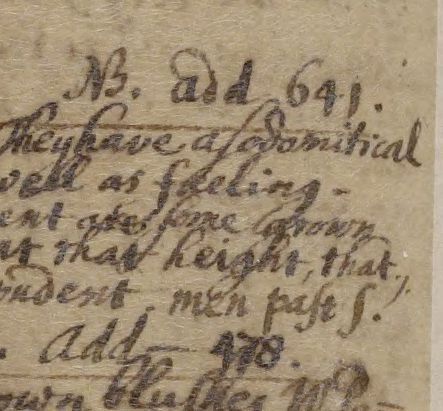 NB. add 641.
They have a sodomitical
well as feeling -
ent are some Grown
at that height, that,
pudent men past S.
. Add — 478.
own blushes